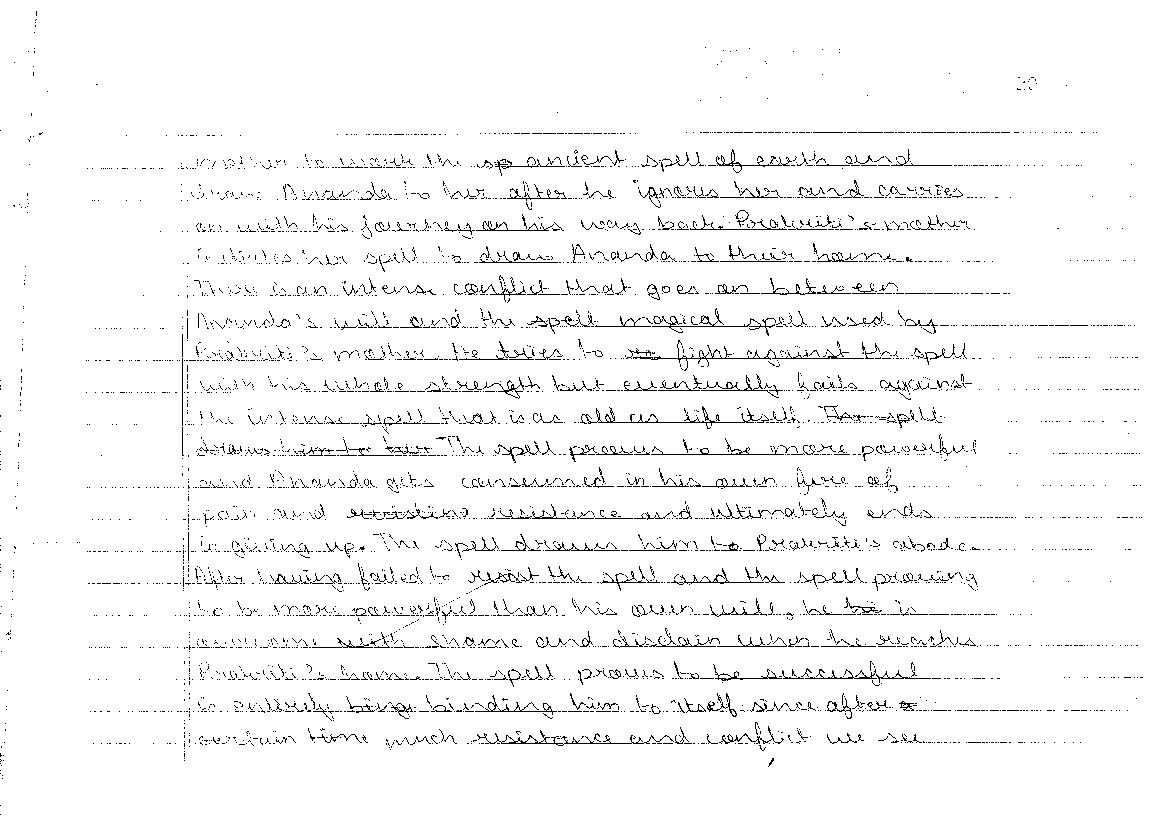 20
mother to work the sp ancient spell of earth and
draw Ananda to her after he ignores her and carries
on with his journey on his way back. Prakriti's mother
initiates her spell to draw Ananda to their home.
There is an intense conflict that goes on between
Ananda's will and the spell magical spell used by
Prakriti's mother. He tries to fight against the spell
with his whole strength but eventually fails against
the intense spell that is as old as life itself. The spell
draws him to her The spell proves to be more powerful
and Ananda gets consumed in his own fire of
pain and resistance and ultimately ends
in giving up. The spell drawn him to Prakriti's abode.
After having failed to resist the spell and the spell proving
to be more powerful than his own will, he is
overcome with shame and disdain when he reaches
Prakriti's home. The spell proves to be successful
in entirely being binding him to itself since after a
certain time much resistance and conflict we see